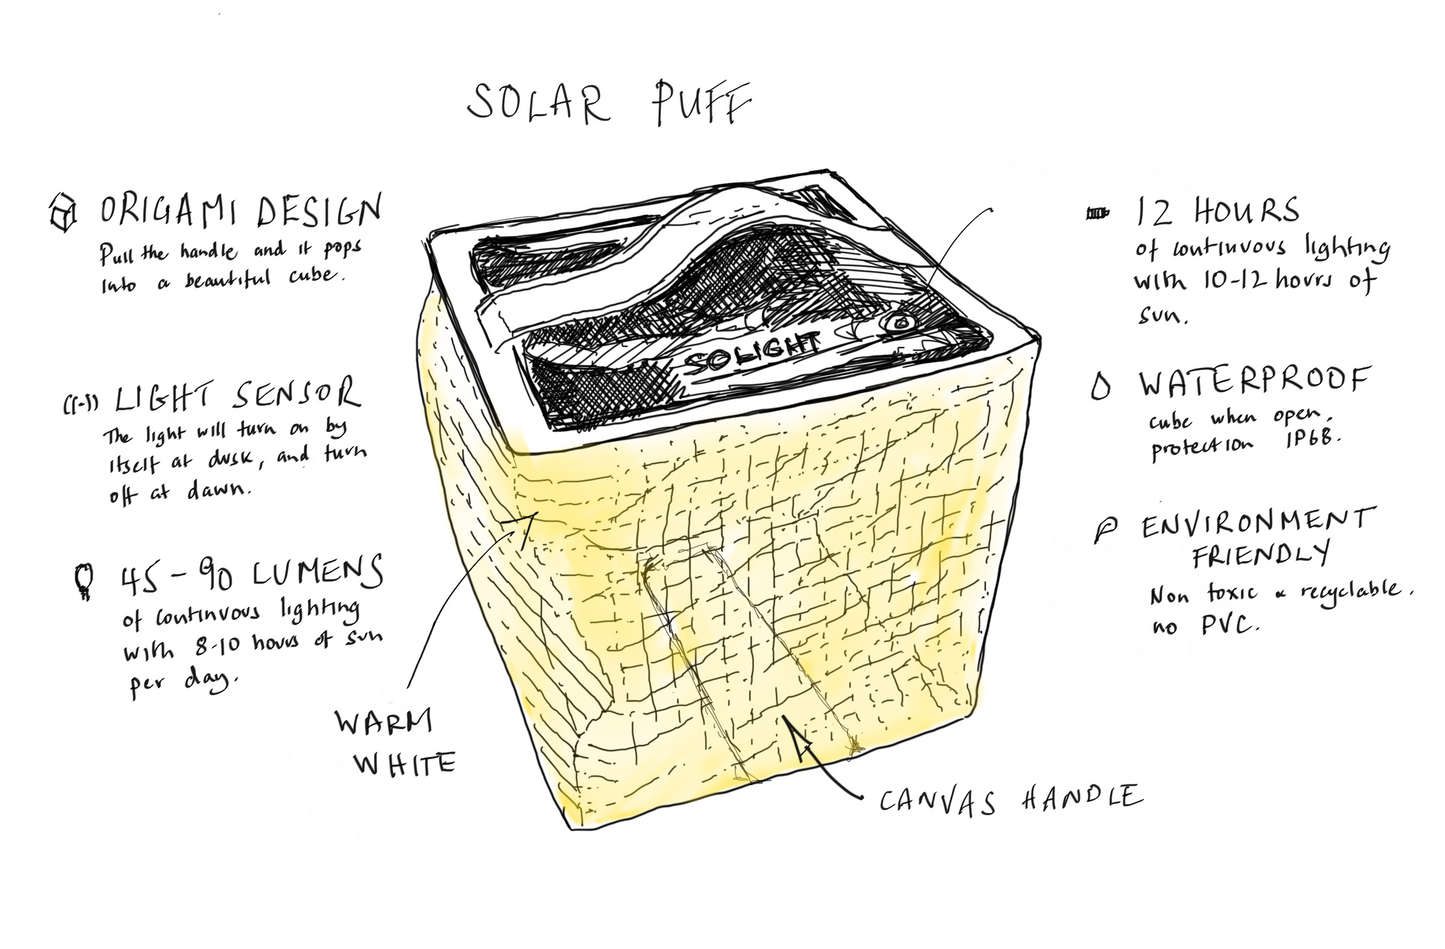 SOLAR PUFF
ORIGAMI DESIGN
Pull the handle and it pops
into a beautiful cube.
LIGHT SENSOR
The light will turn on by
itself at dusk, and turn
off at dawn.
45-90 LUMENS
of continuous lighting
with 8-10 hours of sun
per day.
WARM
WHITE
SOLIGHT
12 HOURS
of continuous lighting
with 10-12 hours of
sun.
WATERPROOF
cube when open.
protection IP68.
ENVIRONMENT
FRIENDLY
Non toxic & recyclable.
no PVC.
CANVAS HANDLE